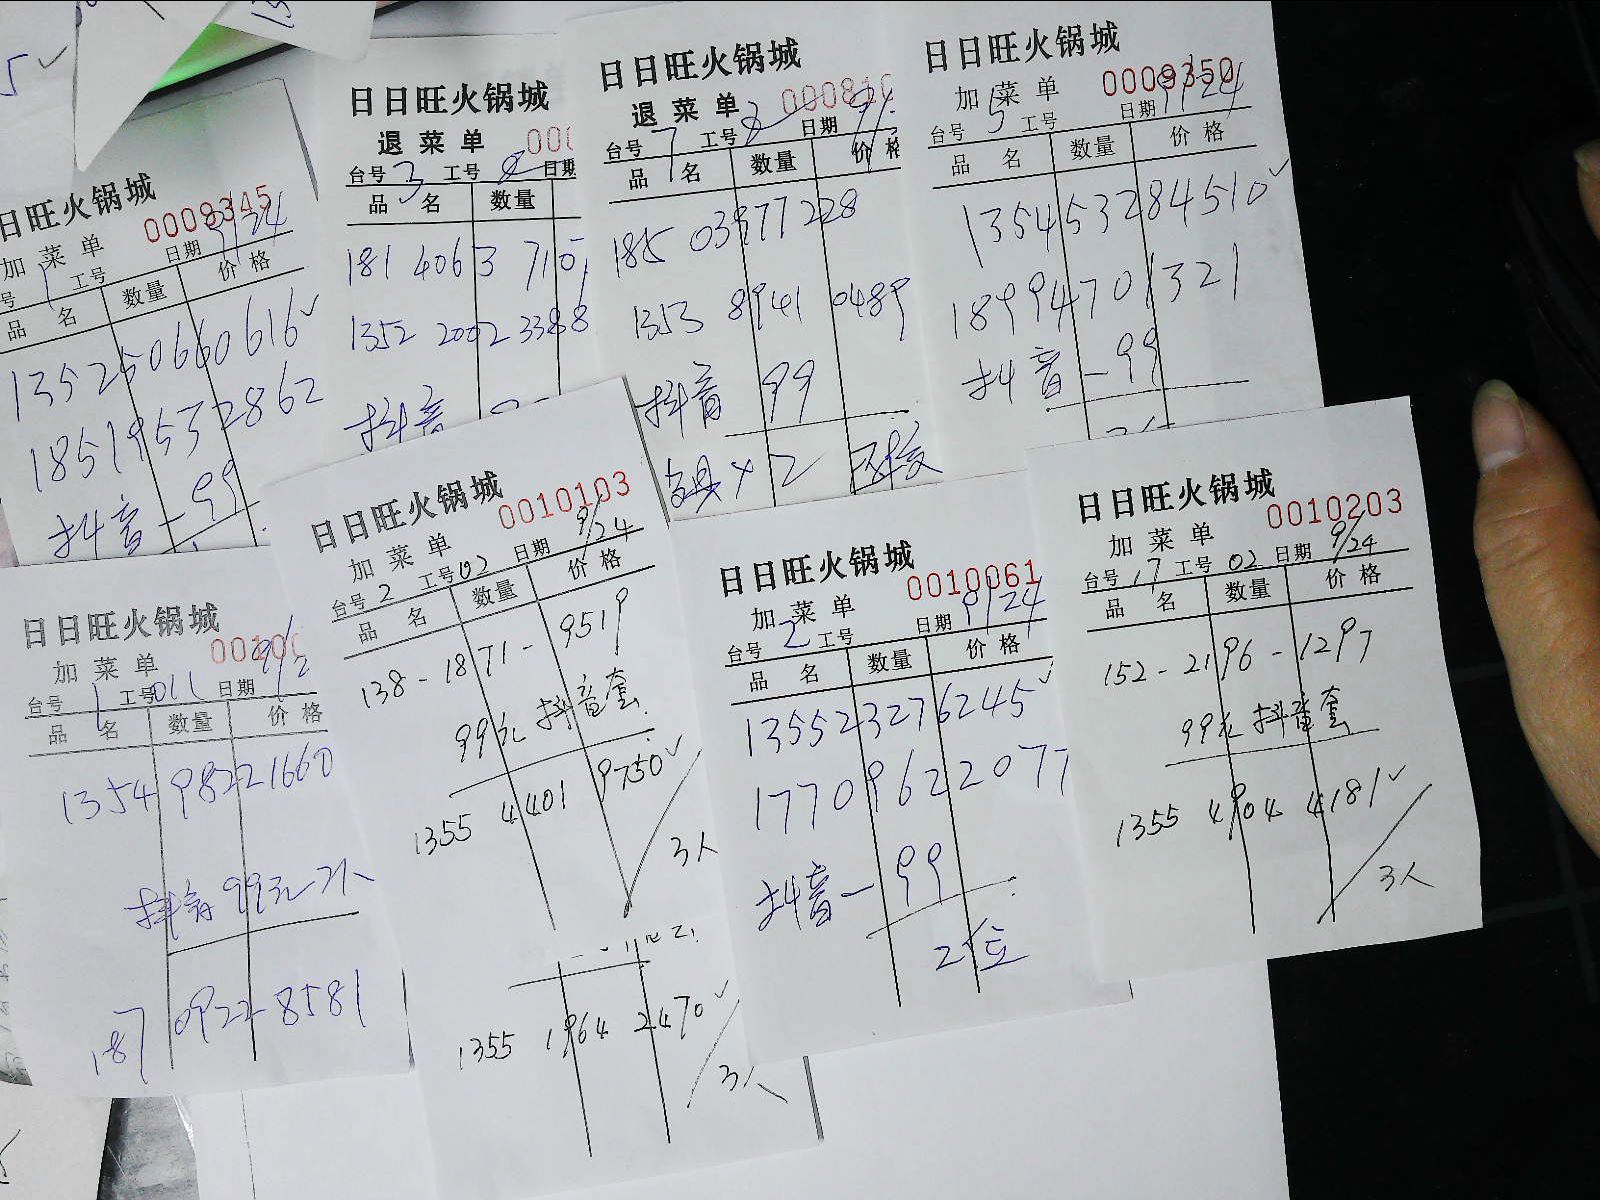 日旺火锅城
0009345
加菜单
号 1 工号 日期 9/24
品 名 数量 价格
13525066061 6✓
18519532862
抖音-99
日日旺火锅城
退菜单
台号 3 工号 日期
品 名 数量
181 4063 710
1352 2002 3388
抖音
日日旺火锅城
退菜单
台号 7 工号 日期
品 名 数量 价格
185 03977228
1353 8941 0489
抖音 99
日日旺火锅城
加菜单 0009350
台号 5 工号 日期 9/24
品 名 数量 价格
135453284510✓
18994701321
抖音-99
日日旺火锅城
加菜单
台号 1 工号 011 日期
品 名 数量 价格
1354 98221660
抖音 99元
187 0922 8581
日日旺火锅城
0010103
加菜单
台号 2 工号 02 日期 9/24
品 名 数量 价格
138-1871-9519
99元 抖音套
1355 4401 9750✓
3人
1355 1964 2470✓
3人
日日旺火锅城
0010061
加菜单
台号 2 工号 日期 9/24
品 名 数量 价格
135523276245✓
17709622077
抖音-99
2位
日日旺火锅城
0010203
加菜单
台号 17 工号 02 日期 9/24
品 名 数量 价格
152-2196-1297
99元 抖音套
1355 4904 4181✓
3人